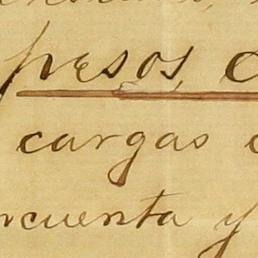 pesos, c
cargas
ncuenta y